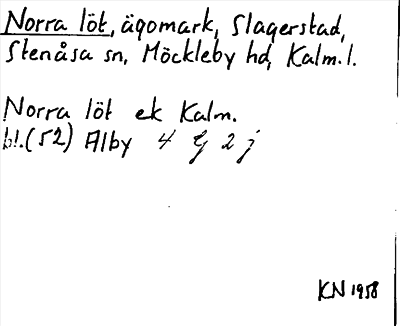 Norra löt, ägomark, Slagerstad,
Stenåsa sn, Möckleby hd, Kalm. l.
Norra löt ek Kalm.
bl. (52) Alby 4 G 2 j
KN 1958